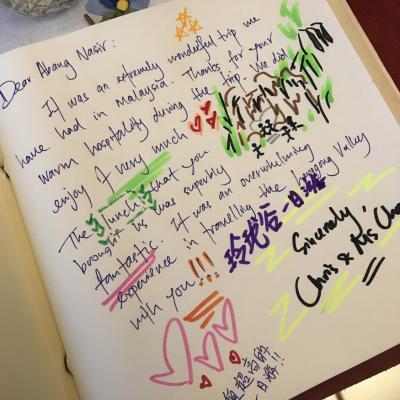 Dear Abang Nasir:
It was an extremely wonderful trip we
have had in Malaysia. Thanks for your
warm hospitality during the trip. We did
enjoy it very much
The lunch that you
brought us was superbly
fantastic. It was an overwhelming
experience in travelling the Valley
with you!!!
玲珑谷一日游
Sincerely,
Chris & Ms
超高的
一日游!!